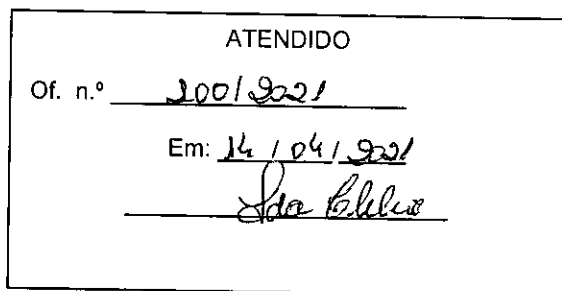 ATENDIDO
Of. n.º 200/2021
Em: 14 / 04 / 2021